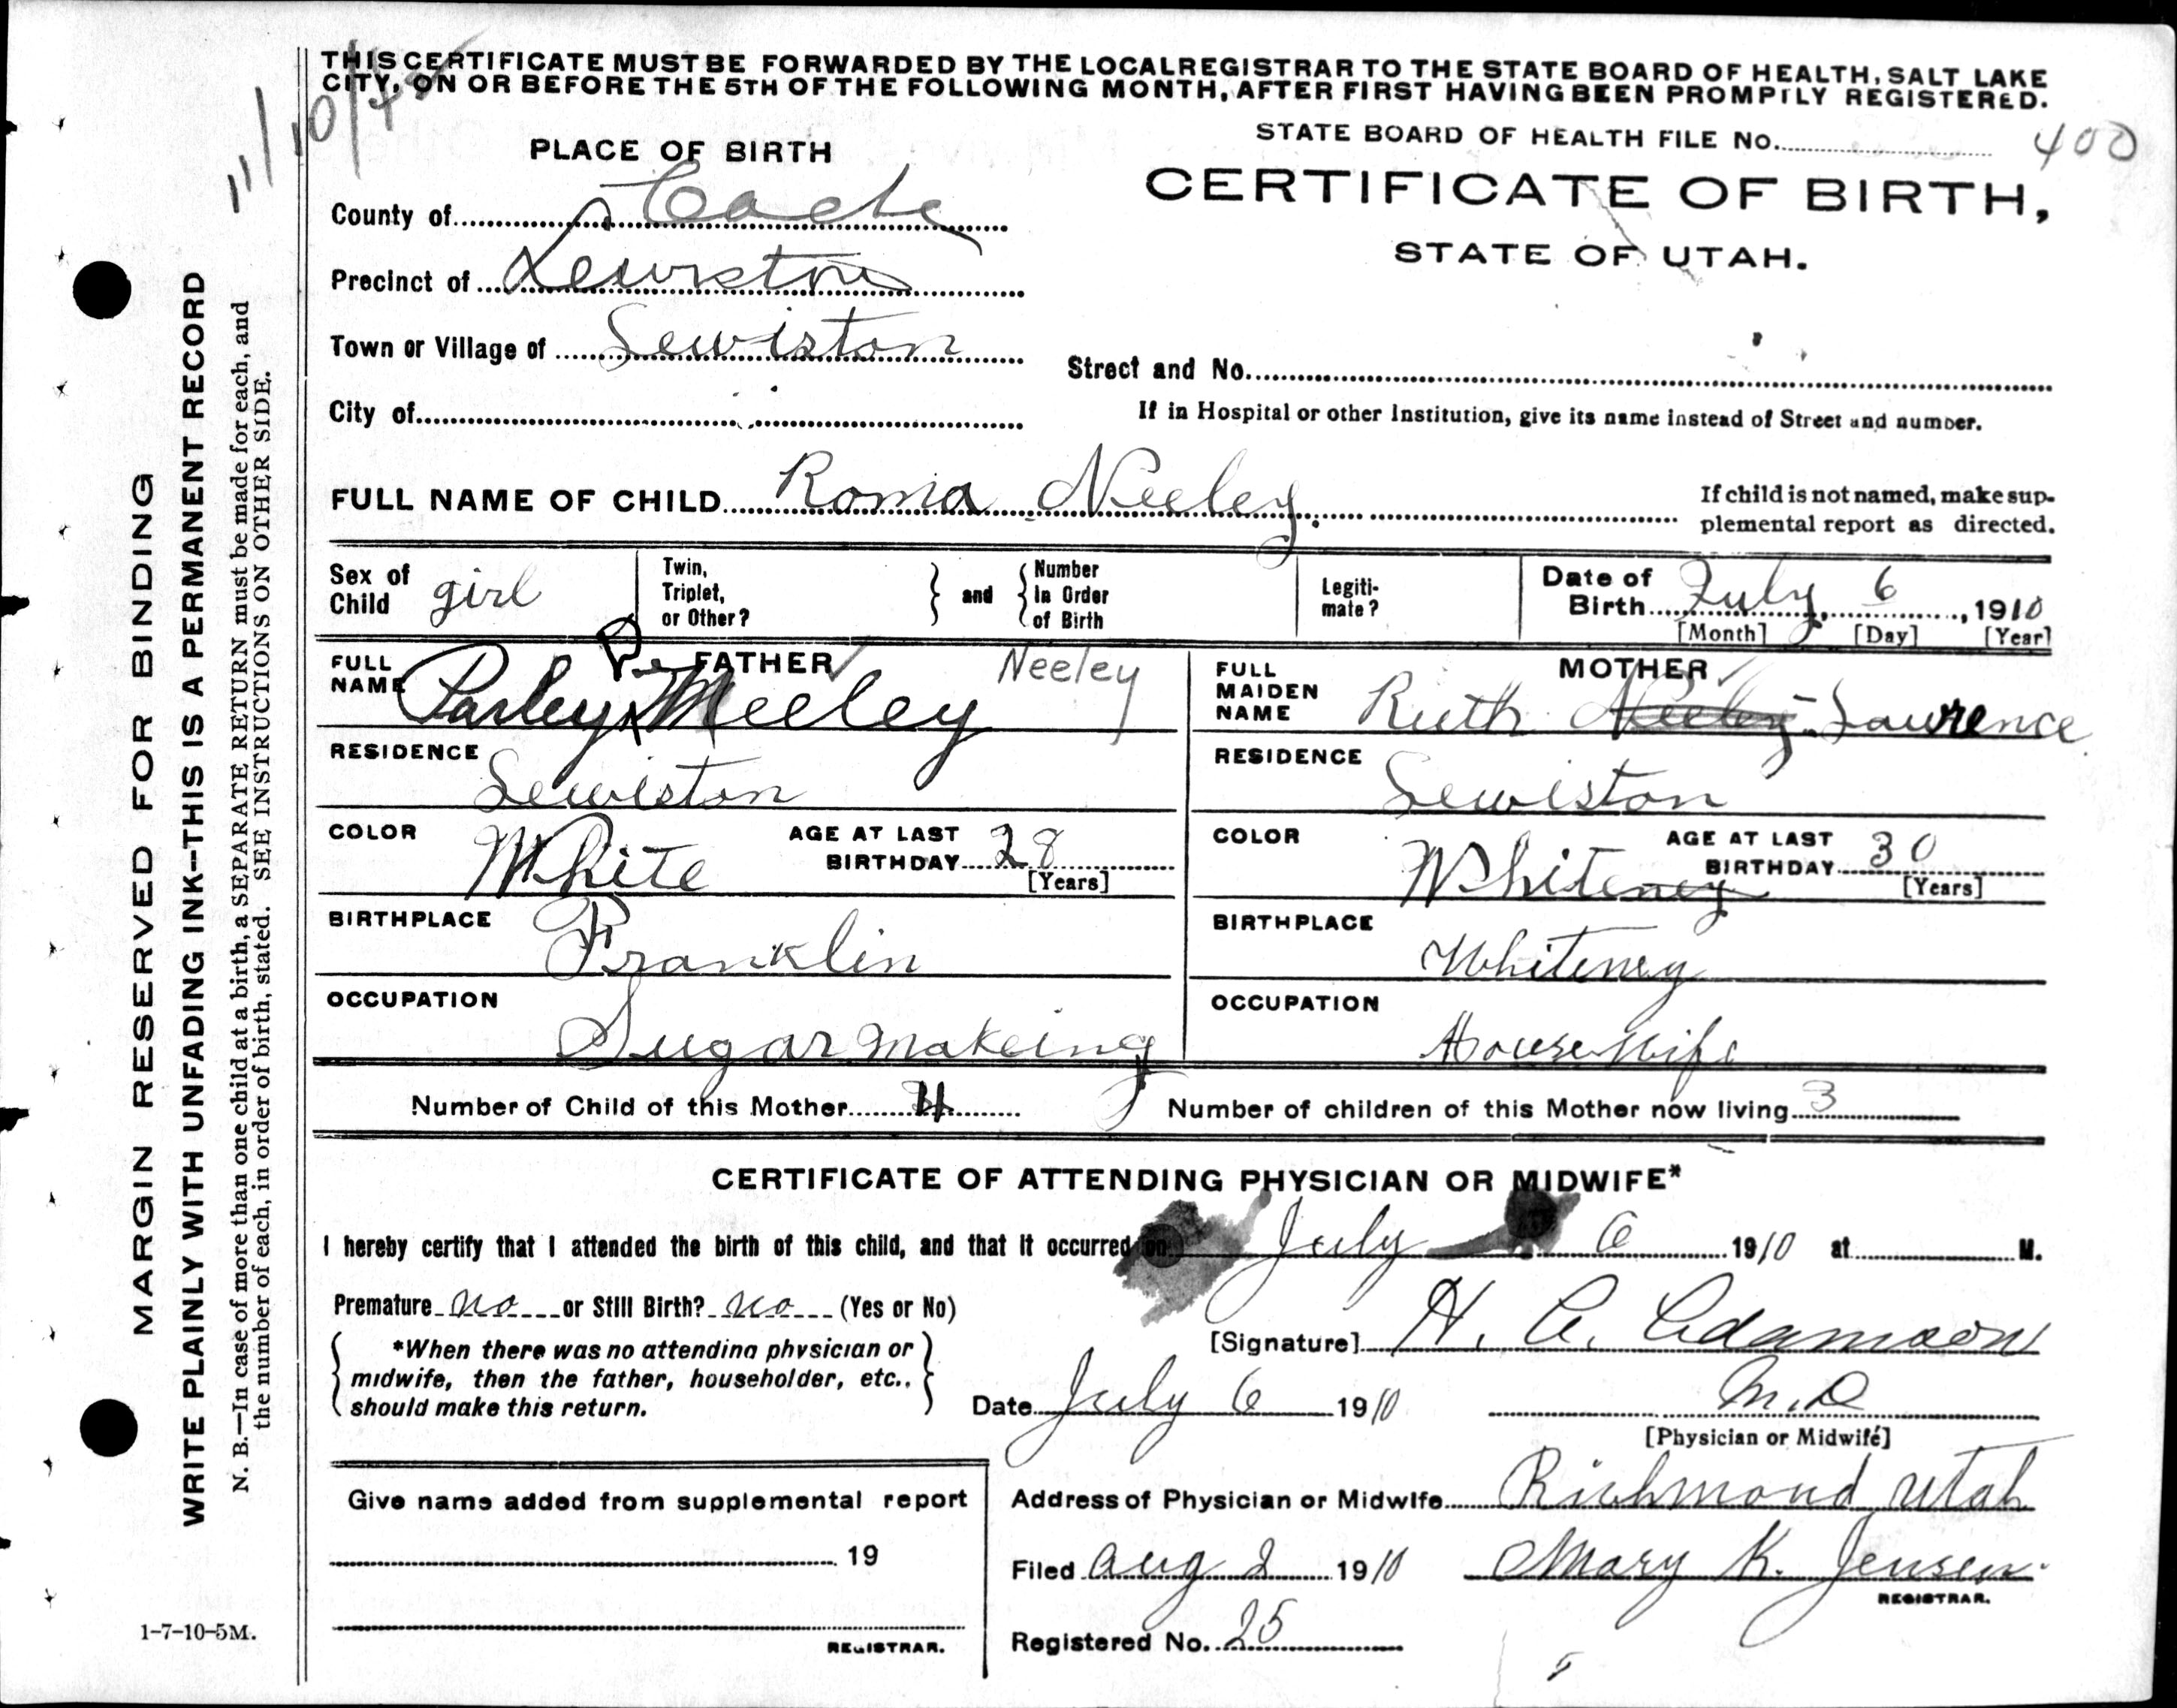 THIS CERTIFICATE MUST BE FORWARDED BY THE LOCAL REGISTRAR TO THE STATE BOARD OF HEALTH, SALT LAKE
CITY, ON OR BEFORE THE 5TH OF THE FOLLOWING MONTH, AFTER FIRST HAVING BEEN PROMPTLY REGISTERED.
STATE BOARD OF HEALTH FILE No. 400
PLACE OF BIRTH
CERTIFICATE OF BIRTH,
STATE OF UTAH.
County of Cache
Precinct of Lewiston
Town or Village of Lewiston
Street and No.
City of
If in Hospital or other Institution, give its name instead of Street and number.
FULL NAME OF CHILD Roma Neeley.
If child is not named, make sup-
plemental report as directed.
Sex of Child girl
Twin, Triplet, or Other?
and
Number In Order of Birth
Legiti-mate?
Date of Birth July, 6, 1910
[Month] [Day] [Year]
FATHER
FULL NAME Parley Neeley
Neeley
RESIDENCE Lewiston
COLOR White
AGE AT LAST BIRTHDAY 28
[Years]
BIRTHPLACE Franklin
OCCUPATION Sugar makeing
MOTHER
FULL MAIDEN NAME Ruth Neeley Lawrence
RESIDENCE Lewiston
COLOR Whiteney
AGE AT LAST BIRTHDAY 30
[Years]
BIRTHPLACE Whiteney
OCCUPATION House Wife
Number of Child of this Mother 4
Number of children of this Mother now living 3
CERTIFICATE OF ATTENDING PHYSICIAN OR MIDWIFE*
I hereby certify that I attended the birth of this child, and that it occurred on July 6 1910 at M.
Premature no or Still Birth? no (Yes or No)
*When there was no attending physician or
midwife, then the father, householder, etc.,
should make this return.
[Signature] H. A. Adamson
Date July 6 1910
M.D
[Physician or Midwife]
Give name added from supplemental report
19
REGISTRAR.
Address of Physician or Midwife Richmond Utah
Filed Aug 2 1910 Mary K. Jensen
REGISTRAR.
Registered No. 25
MARGIN RESERVED FOR BINDING
WRITE PLAINLY WITH UNFADING INK--THIS IS A PERMANENT RECORD
N. B.—In case of more than one child at a birth, a SEPARATE RETURN must be made for each, and
the number of each, in order of birth, stated. SEE INSTRUCTIONS ON OTHER SIDE.
1-7-10-5M.